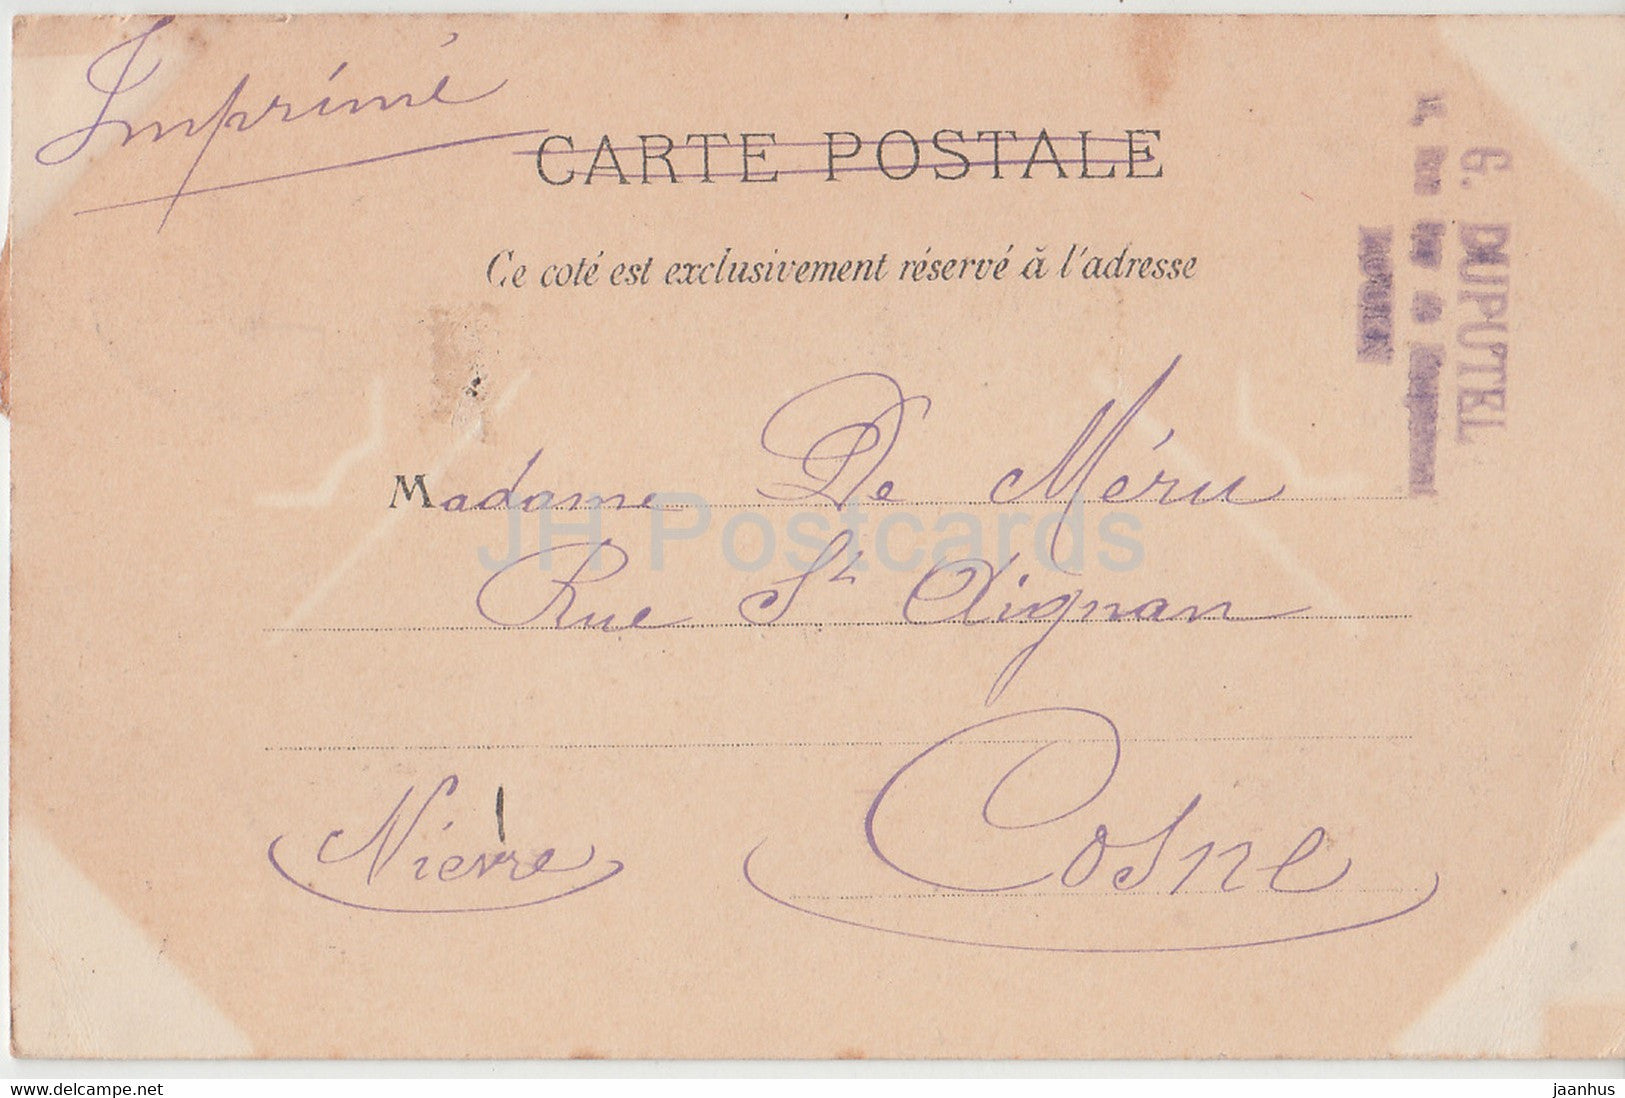 Imprimé
CARTE POSTALE
Ce coté est exclusivement réservé à l'adresse
G. DUPUTEL
ROUEN
Madame De Méru
JH Postcards
Rue St Aignan
Cosne
Nièvre
www.delcampe.net
jaanhus